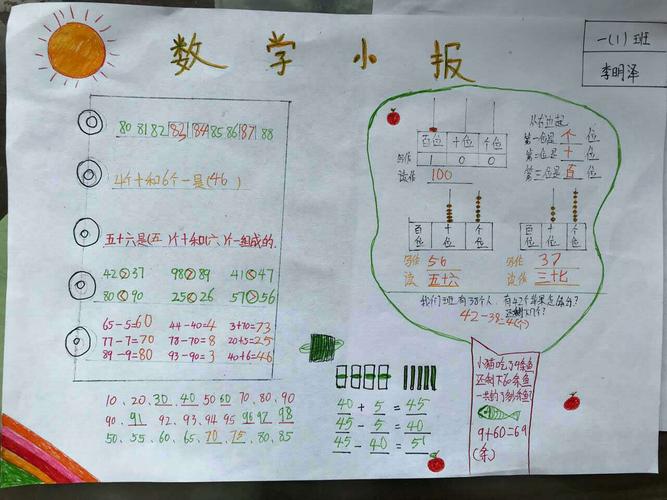 数学小报
一(1)班
李明泽
80 81 82 83 84 85 86 87 88
4个十和6个一是(46)
五十六是(五)个十和(六)个一组成的.
42>37 98>89 41<47
80<90 25<26 57>56
65-5=60 44-40=4 3+70=73
77-7=70 78-70=8 20+5=25
89-9=80 93-90=3 40+6=46
10、20、30 40 50 60 70、80、90
90、91 92、93、94、95 96 97 98
50、55、60、65、70、75、80、85
百位 十位 个位
写作 1 0 0
读作 100
从右边起
第一位是 个 位
第二位是 十 位
第三位是 百 位
百位 十位 个位
写作 56
读 五十六
百位 十位 个位
写作 37
读作 三十七
我们班有38个人，有42个苹果
42-38=4(个)
40+5=45
45-5=40
45-40=5
小猫吃了9条鱼
还剩下60条鱼
9+60=69
(条)